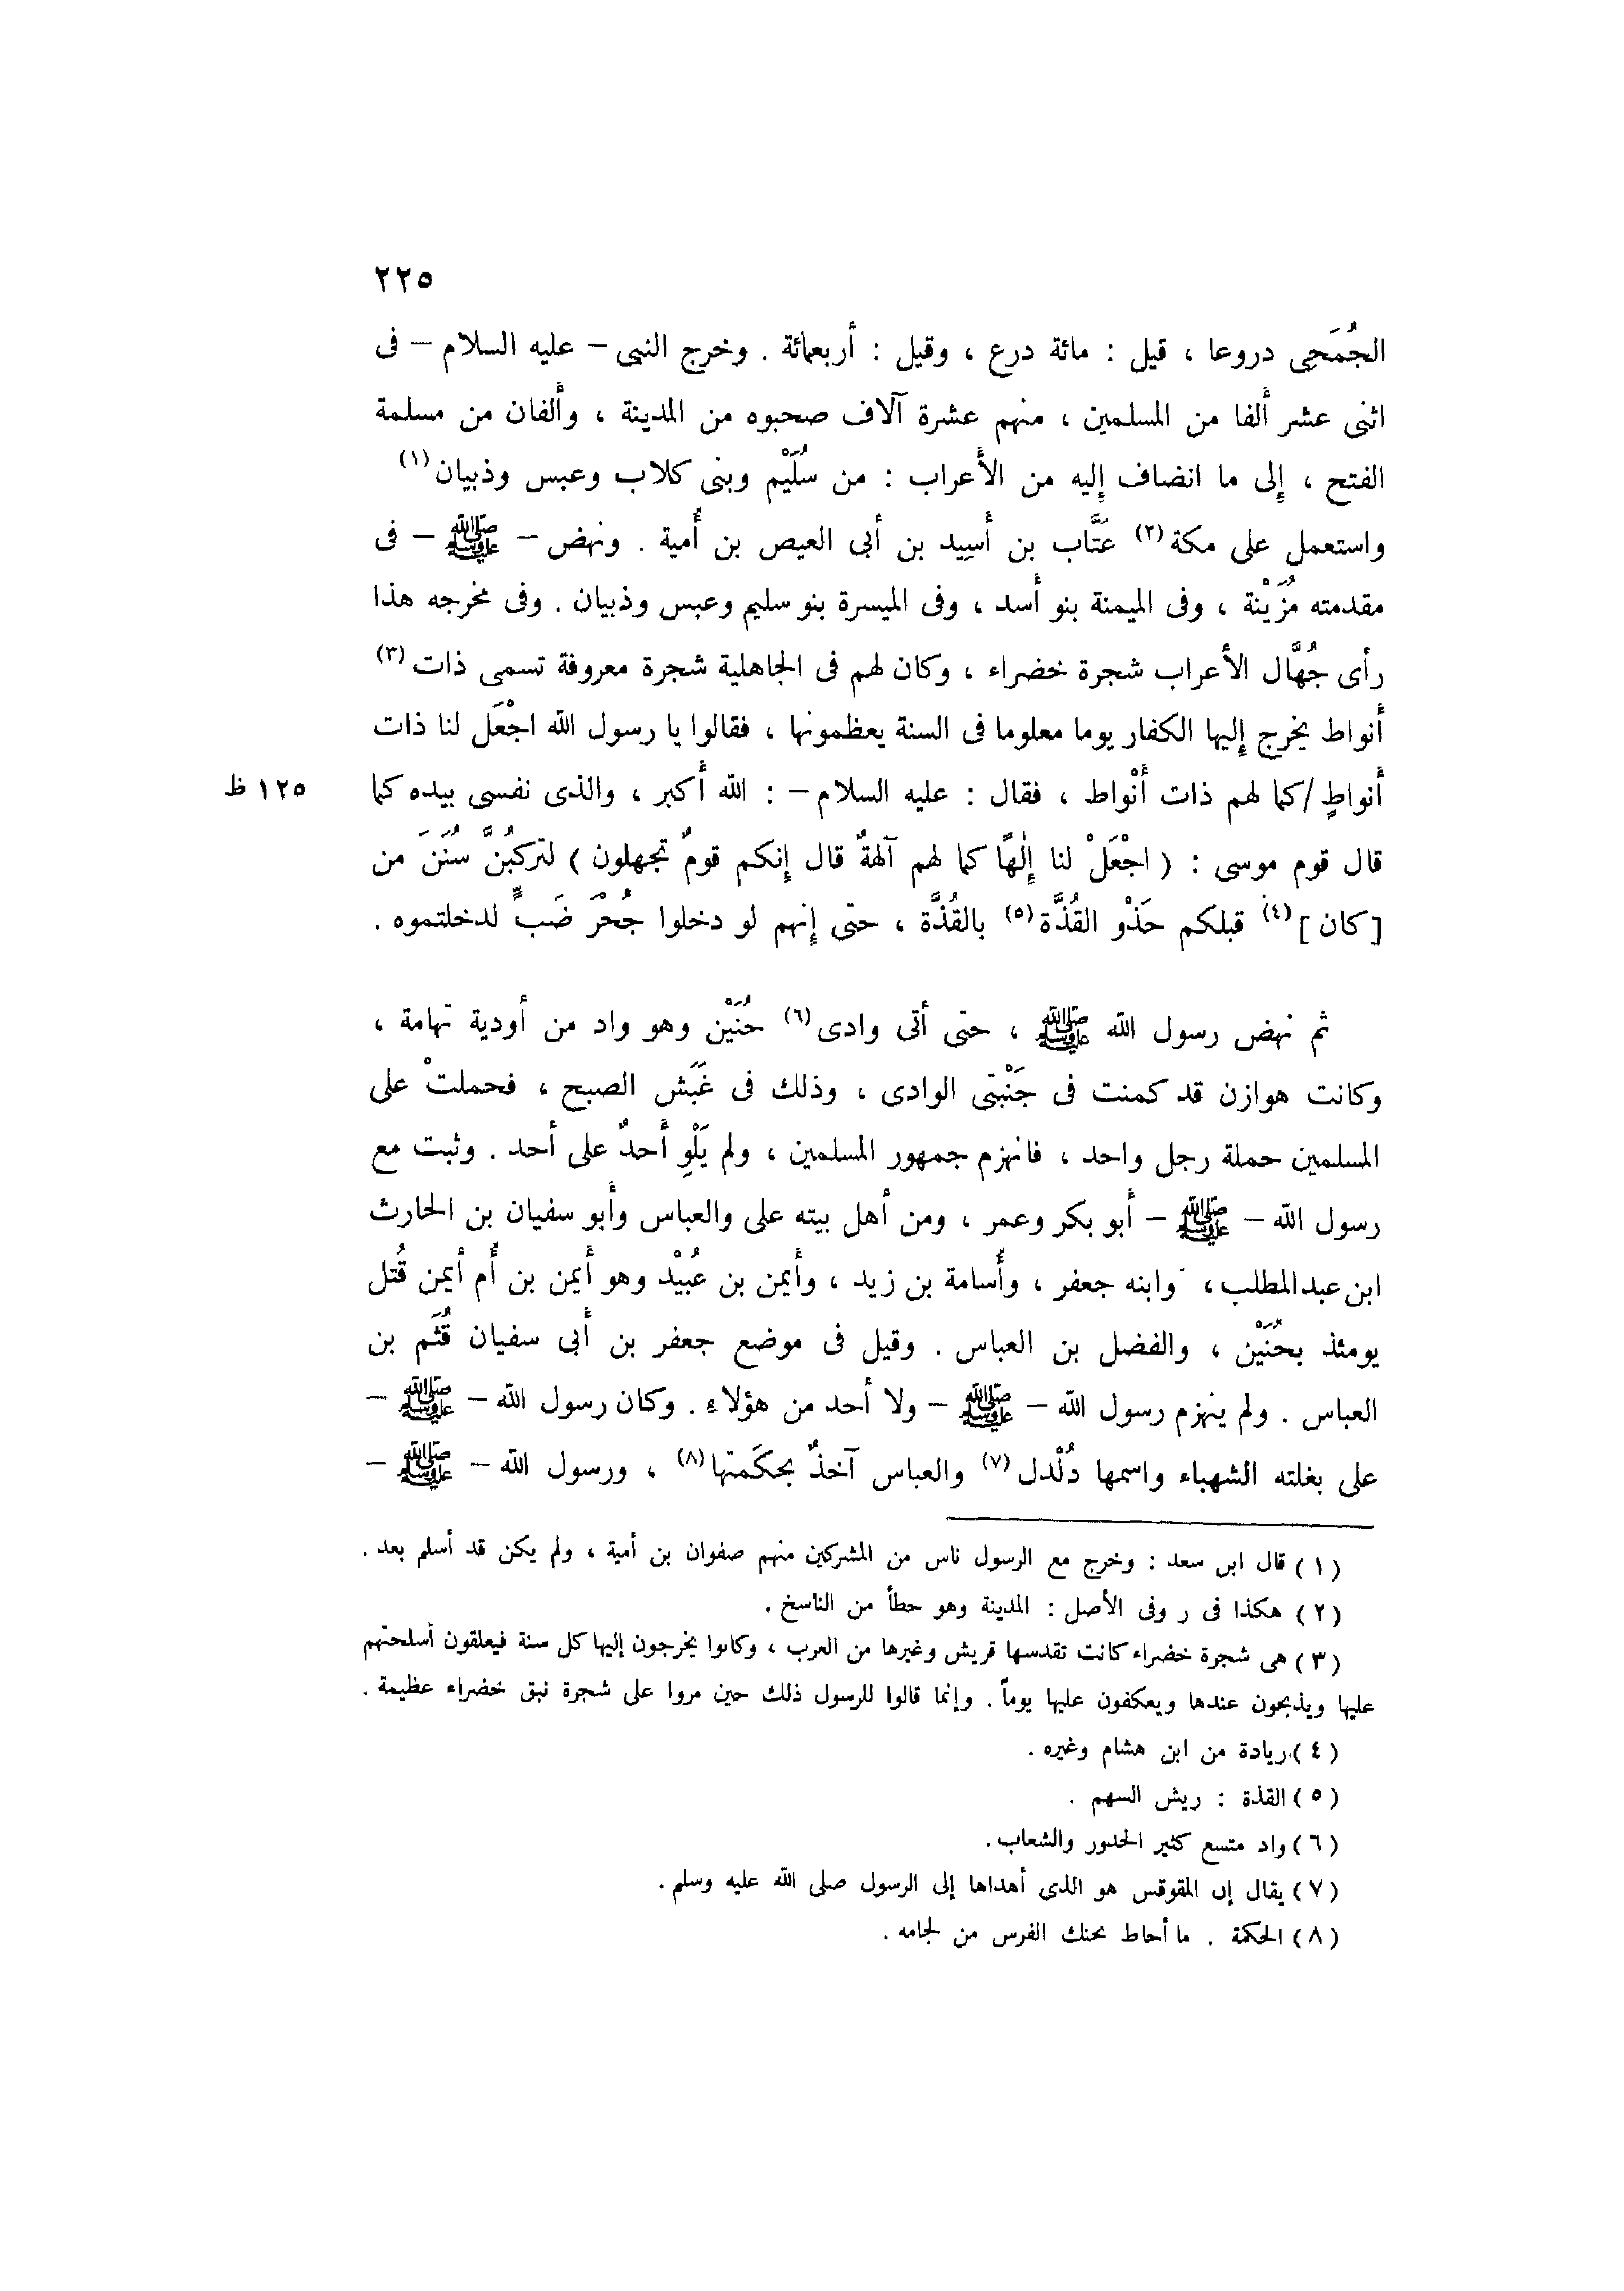 ٢٢٥
الجُمَحِى دروعا ، قيل : مائة درع ، وقيل : أربعمائة . وخرج النبى – عليه السلام – فى
اثنى عشر ألفا من المسلمين ، منهم عشرة آلاف صحبوه من المدينة ، وألفان من مسلمة
الفتح ، إلى ما انضاف إليه من الأعراب : من سُلَيْم وبنى كلاب وعبس وذبيان (١)
واستعمل على مكة (٢) عَتَّاب بن أَسِيد بن أبى العيص بن أُمية . ونهض – ﷺ – فى
مقدمته مُزَيْنة ، وفى الميمنة بنو أسد ، وفى الميسرة بنو سليم وعبس وذبيان . وفى مخرجه هذا
رأى جُهَّال الأعراب شجرة خضراء ، وكان لهم فى الجاهلية شجرة معروفة تسمى ذات (٣)
أنواط يخرج إليها الكفار يوما معلوما فى السنة يعظمونها ، فقالوا يا رسول الله اجْعَل لنا ذات
أنواطٍ /كما لهم ذات أنْواط ، فقال : عليه السلام – : الله أكبر ، والذى نفسى بيده كما
١٢٥ ظ
قال قوم موسى : ( اجْعَلْ لنا إلٰهًا كما لهم آلهةٌ قال إنكم قومٌ تجهلون ) لتركبُنَّ سُنَنَ من
[كان ] (٤) قبلكم حَذْو القُذَّة (٥) بالقُذَّة ، حتى إنهم لو دخلوا جُحْرَ ضَبٍّ لدخلتموه .
ثم نهض رسول الله ﷺ ، حتى أتى وادى (٦) حُنَيْن وهو واد من أودية تهامة ،
وكانت هوازن قد كمنت فى جَنْبَتى الوادى ، وذلك فى غَبَش الصبح ، فحملتْ على
المسلمين حملة رجل واحد ، فانهزم جمهور المسلمين ، ولم يَلْوِ أحدٌ على أحد . وثبت مع
رسول الله – ﷺ – أبو بكر وعمر ، ومن أهل بيته على والعباس وأبو سفيان بن الحارث
ابن عبدالمطلب، وابنه جعفر ، وأُسامة بن زيد ، وأيمن بن عُبَيْد وهو أيمن بن أُم أيمن قُتل
يومئذ بحُنَيْن ، والفضل بن العباس . وقيل فى موضع جعفر بن أبى سفيان قُثَم بن
العباس . ولم ينهزم رسول الله – ﷺ – ولا أحد من هؤلاء . وكان رسول الله – ﷺ –
على بغلته الشهباء واسمها دُلْدل (٧) والعباس آخذٌ بحكَمتها (٨) ، ورسول الله – ﷺ –
(١) قال ابن سعد : وخرج مع الرسول ناس من المشركين منهم صفوان بن أمية ، ولم يكن قد أسلم بعد .
(٢) هكذا فى ر وفى الأصل : المدينة وهو خطأ من الناسخ .
(٣) هى شجرة خضراء كانت تقدسها قريش وغيرها من العرب ، وكانوا يخرجون إليها كل سنة فيعلقون أسلحتهم
عليها ويذبحون عندها ويعكفون عليها يوماً . وإنما قالوا للرسول ذلك حين مروا على شجرة نبق خضراء عظيمة .
(٤) زيادة من ابن هشام وغيره .
(٥) القذة : ريش السهم .
(٦) واد متسع كثير الحدور والشعاب.
(٧) يقال إن المقوقس هو الذى أهداها إلى الرسول صلى الله عليه وسلم .
(٨) الحكمة . ما أحاط بحنك الفرس من لجامه .